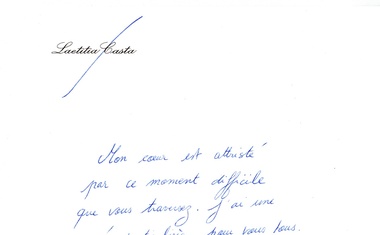 Laetitia Casta
Mon cœur est attristé
par ce moment difficile
que vous traversez. J'ai une
pour vous tous.